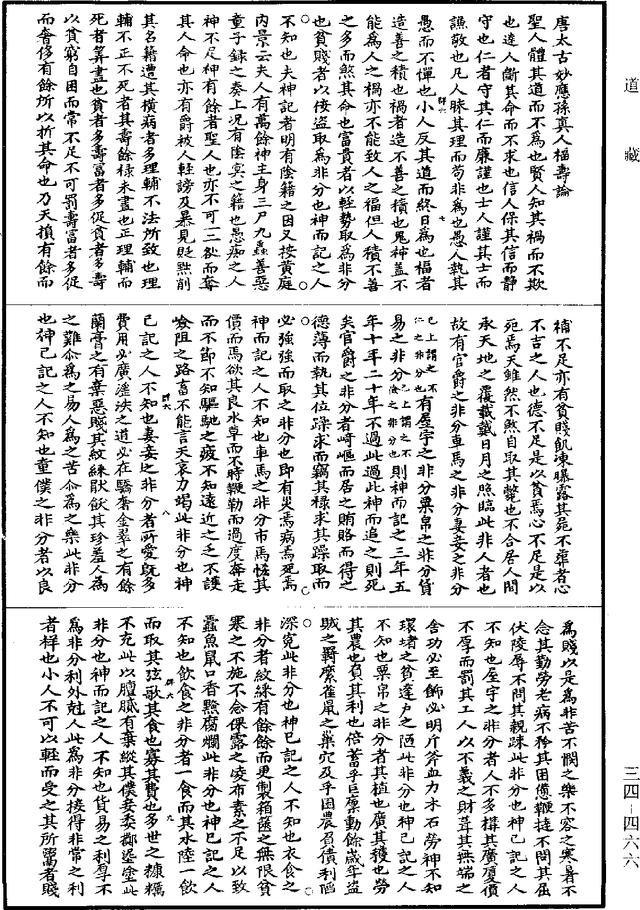 道藏
唐太古妙應孫真人福壽論
聖人體其道而不為也賢人知其禍而不欺
也達人斷其命而不求也信人保其信而靜
守也仁者守其仁而廉謹也士人謹其士而
謙敬也凡人昧其理而苟非為也愚人執其
愚而不憚也小人反其道而終日為也福者
造善之積也禍者造不善之積也鬼神蓋不
能為人之禍亦不能致人之福但人積不善
之多而煞其命也富貴者以輕勢取為非分
也貧賤者以佞盜取為非分也神而記之人
不知也夫神記者明有陰籍之因又按黃庭
內景云夫人有萬餘神主身三尸九蟲善惡
童子錄之奏上況有陰冥之籍也愚痴之人
神不足神有餘者聖人也亦不可一二欲而奪
其人命也亦有爵被人輕謗及暴見貶黜削
其名籍遭其橫病者多理輔不法所致也理
輔不正不死者其壽餘祿未盡也正理輔而
死者筭盡也貧者多壽富者多促貧者多壽
以貧窮自困而常不足不可罰壽富者多促
而奢侈有餘所以折其命也乃天損有餘而
補不足亦有貧賤飢凍曝露其屍不葬者心
不吉之人也德不足是以貧焉心不足是以
死焉天雖然不煞自取其斃也不合居人間
承天地之覆載戴日月之照臨此非人者也
故有官爵之非分車馬之非分妻妾之非分
已上謂之不仁之非分也有屋宇之非分粟帛之非分貨
易之非分已上謂之不儉之非分也則神而記之三年五
年十年二十年不過此過此神而追之則死
矣官爵之非分者崎嶇而居之賄賂而得之
德薄而執其位躁求而竊其祿求其躁取而
必強強而取之非分也即有災焉病焉死焉
神而記之人不知也車馬之非分市馬恠其
價而馬欲其良水草而不時鞭勒而過度奔走
而不節不知驅馳之疲不知遠近之乏不護
險阻之路畜不能言天哀力竭此非分也神
已記之人不知也妻妾之非分者所愛既多
費用必廣淫泆之道必在驕奢金翠之有餘
蘭膏之有棄惡賤其紋綵厭飫其珍羞人為
之難尒為之易人為之苦尒為之樂此非分
也神已記之人不知也童僕之非分者以良
為賤以是為非苦不憫之樂不容之寒暑不
念其勤勞老病不矜其困憊鞭撻不問其屈
伏陵辱不問其親踈此非分也神已記之人
不知也屋宇之非分者人不多構其廣廈價
不厚而罰其工人以不義之財葺其無端之
舍功必至飾必明斤斧血力木石勞神不知
環堵之貧蓬戶之陋此非分也神已記之人
不知也粟帛之非分者其植也廣其穫也勞
其農也負其利也倍蓄乎巨廩動餘歲年盜
賊之羇縻雀鼠之巢穴及乎困農負債利陷
深寃此非分也神已記之人不知也衣食之
非分者紋綵有餘餘而更製箱篋之無限貧
寒之不施不念倮露之凌布素之不足以致
蠹魚鼠口香黦腐爛此非分也神已記之人
不知也飲食之非分者一食而其水陸一飲
而取其弦歌其食也寡其費也多世之糠糲
不充此以膻膩有棄縱其僕妾委擲塗此
非分也神而記之人不知也貨易之利厚不
為非分利外尅人此為非分接得非常之利
者祥也小人不可以輕而受之其所鬻者賤
群六 七
群六 八
群六 九
三四－四六六